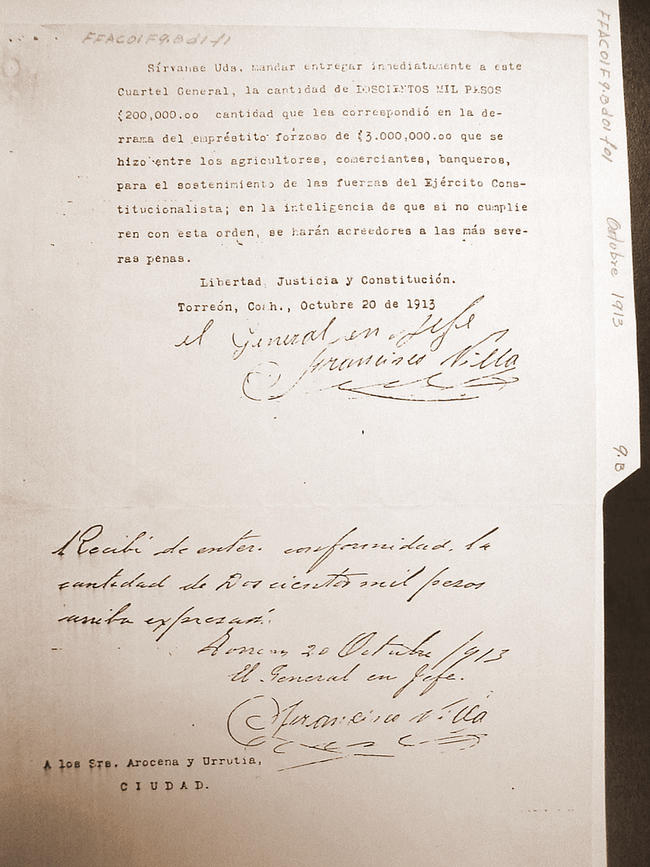 FFAC01F9.Bd1f1
Sírvanse Uds. mandar entregar inmediatamente a este
Cuartel General, la cantidad de DOSCIENTOS MIL PESOS
($200,000.oo cantidad que les correspondió en la de-
rrama del empréstito forzoso de $3.000,000.oo que se
hizo entre los agricultores, comerciantes, banqueros,
para el sostenimiento de las fuerzas del Ejército Cons-
titucionalista; en la inteligencia de que si no cumplie
ren con esta orden, se harán acreedores a las más seve-
ras penas.
Libertad, Justicia y Constitución.
Torreón, Coah., Octubre 20 de 1913
el General en Jefe
Francisco Villa
Recibí de enter. conformidad. la
cantidad de Doscientos mil pesos
arriba expresad.
Torreon 20 Octubre /913
El General en Jefe.
Francisco Villa
A los Srs. Arocena y Urrutia,
CIUDAD.
FFAC01F9.Bd01f01
Octubre 1913
9.B